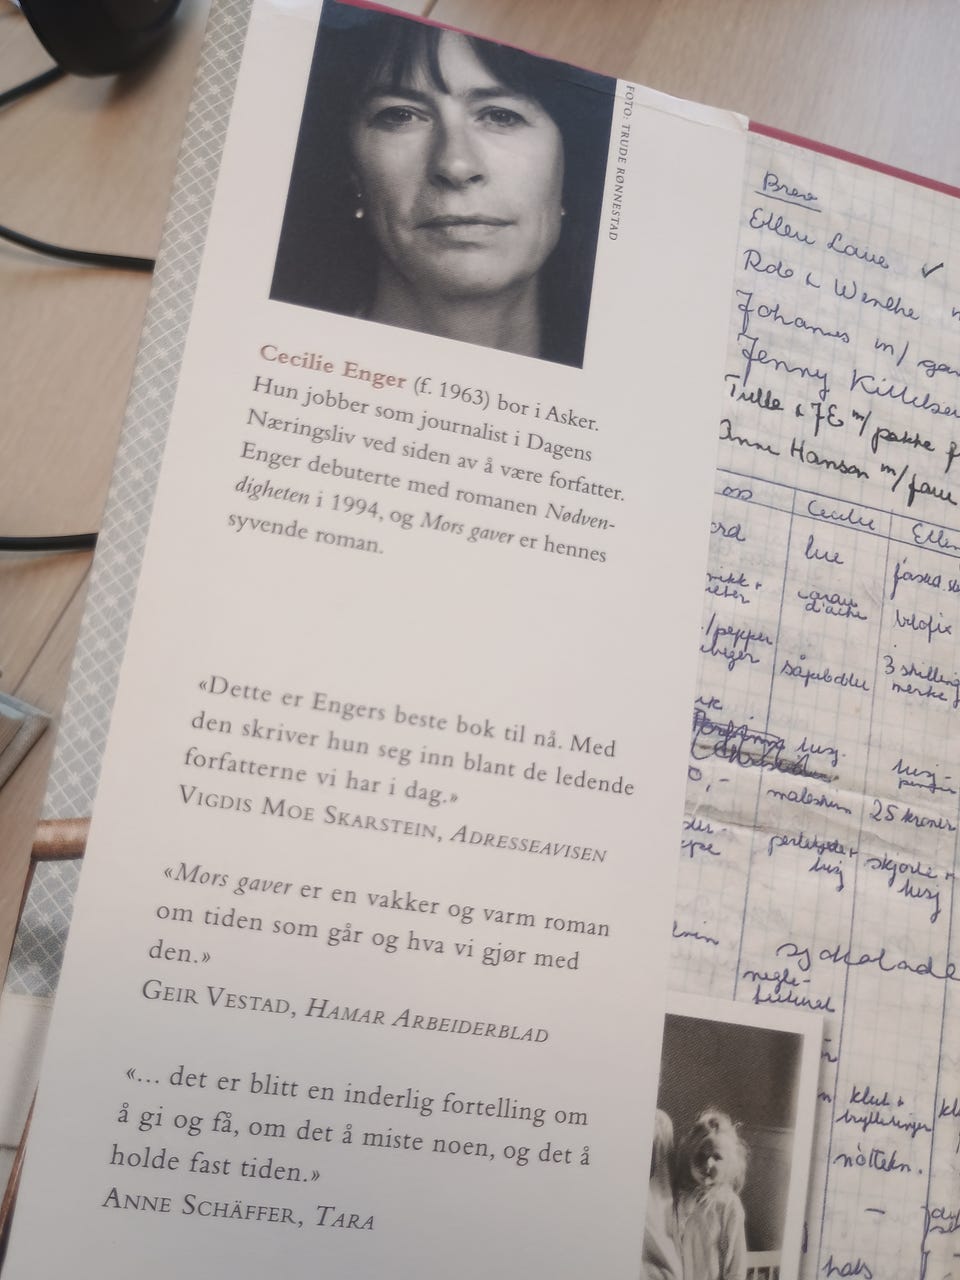 FOTO: TRUDE RØNNESTAD
Cecilie Enger (f. 1963) bor i Asker.
Hun jobber som journalist i Dagens
Næringsliv ved siden av å være forfatter.
Enger debuterte med romanen Nødven-
digheten i 1994, og Mors gaver er hennes
syvende roman.
«Dette er Engers beste bok til nå. Med
den skriver hun seg inn blant de ledende
forfatterne vi har i dag.»
VIGDIS MOE SKARSTEIN, ADRESSEAVISEN
«Mors gaver er en vakker og varm roman
om tiden som går og hva vi gjør med
den.»
GEIR VESTAD, HAMAR ARBEIDERBLAD
«... det er blitt en inderlig fortelling om
å gi og få, om det å miste noen, og det å
holde fast tiden.»
ANNE SCHÄFFER, TARA
Brev
Ellen Laue ✓
& Wenche
Johannes m/
Jenny
m/ pakke
Anne Hanson m/
oss Cecilie
lue
caran
d'ache
/pepper
såpeboble
3 skilling
merke
25 kroner
skjorte +
sjokolade
negle-
klut +
nattekn.
hals